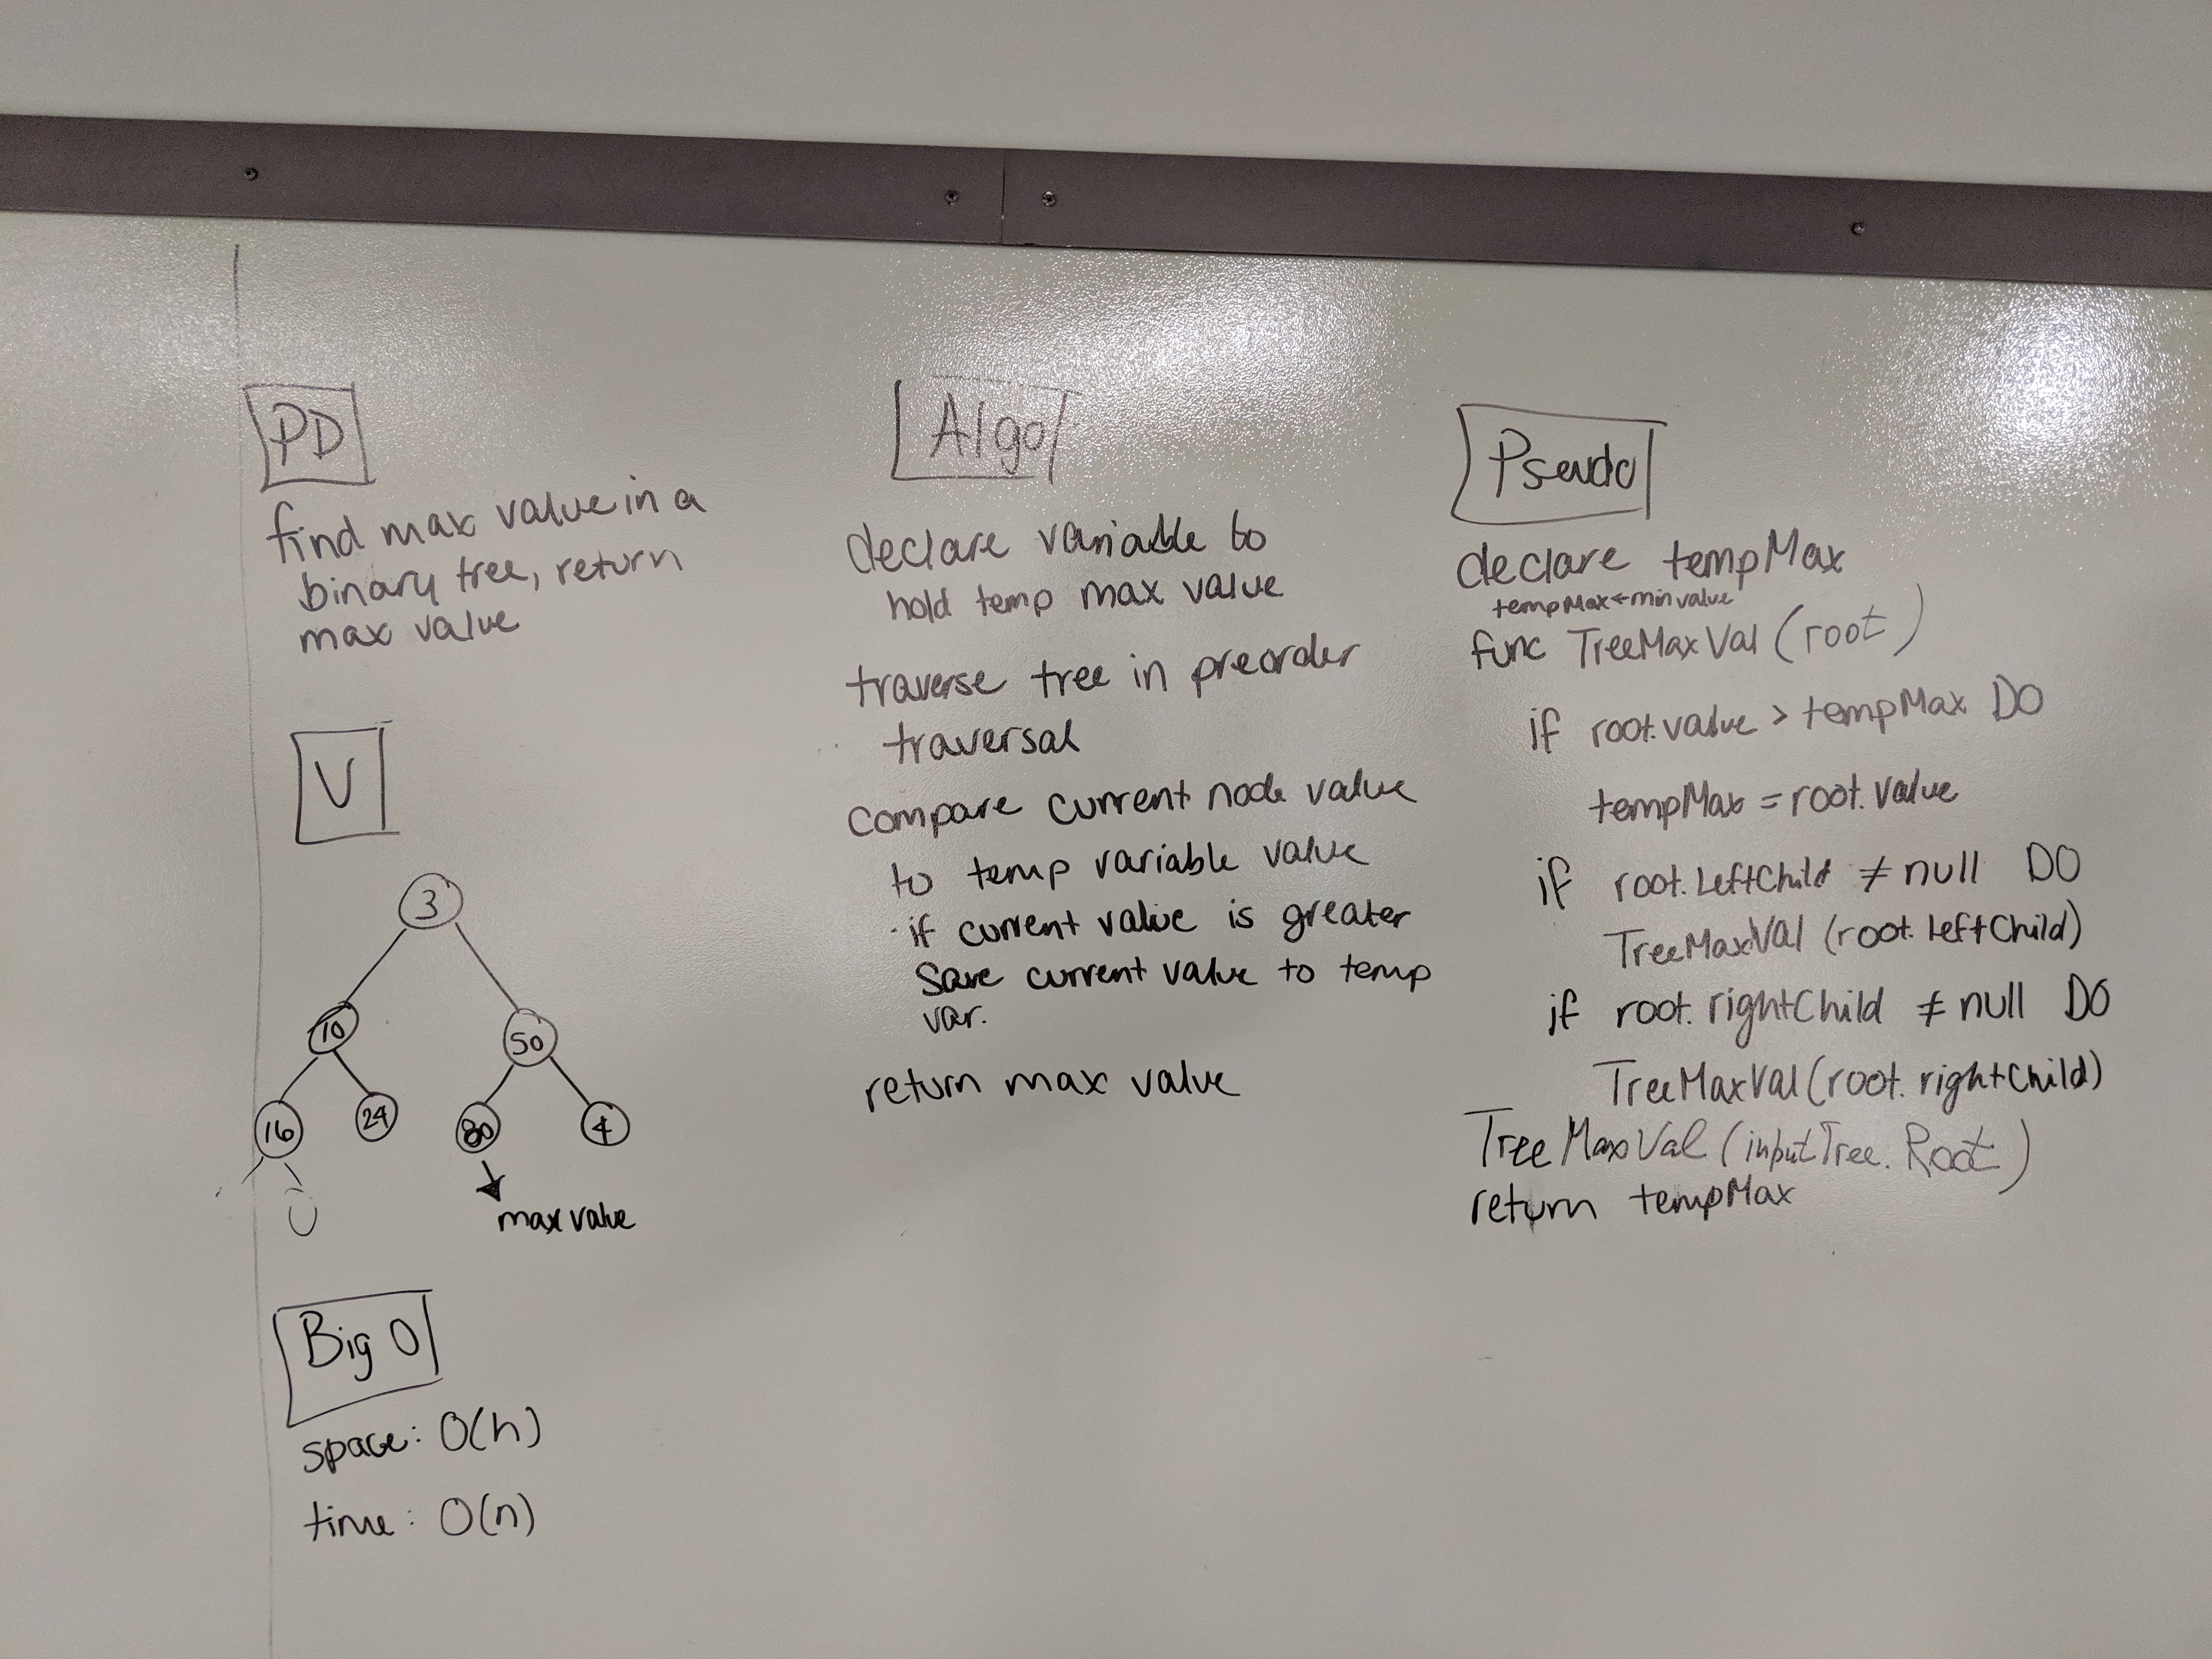 PD
find max value in a
binary tree, return
max value
V
3
10
50
16
24
80
4
max value
Big O
space: O(h)
time: O(n)
Algo
declare variable to
hold temp max value
traverse tree in preorder
traversal
compare current node value
to temp variable value
- if current value is greater
save current value to temp
var.
return max value
Pseudo
declare tempMax
tempMax ← min value
func TreeMaxVal (root)
if root.value > tempMax DO
tempMax = root.value
if root.LeftChild ≠ null DO
TreeMaxVal (root.leftChild)
if root.rightChild ≠ null DO
TreeMaxVal (root.rightChild)
TreeMaxVal (inputTree.Root)
return tempMax